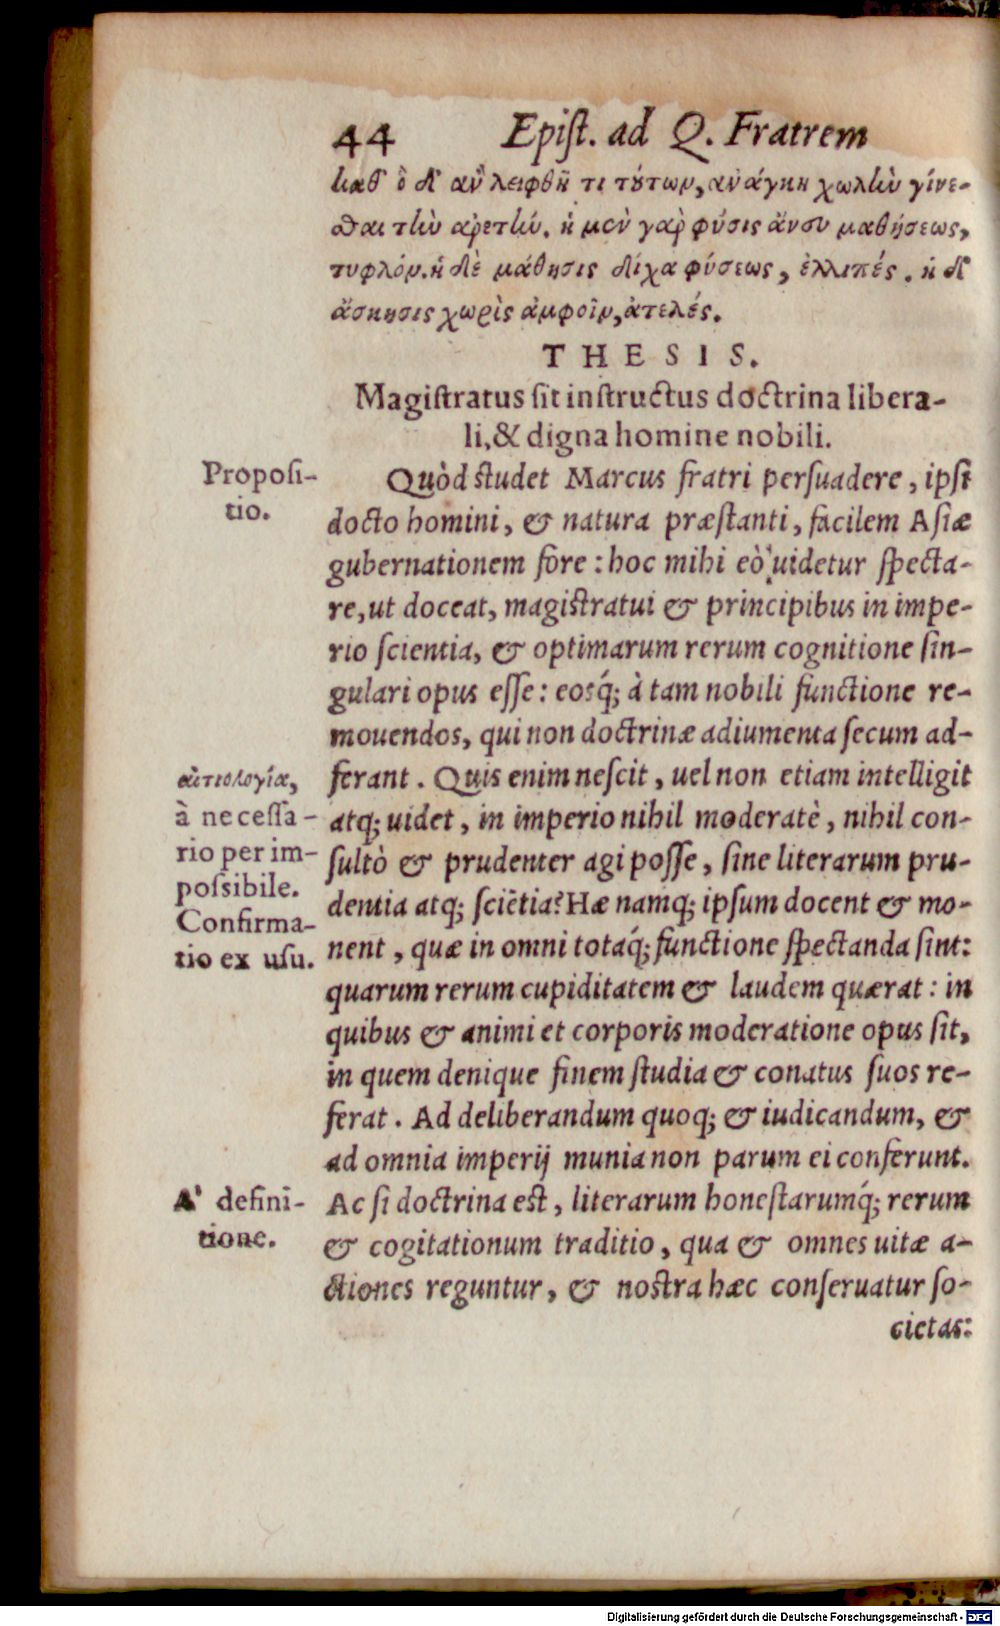 44 Epist. ad Q. Fratrem
καθ' ὃ δ' ἂν λειφθῇ τι τούτων, ἀνάγκη χωλὴν γίνε-
σθαι τὴν ἀρετήν. ἡ μὲν γὰρ φύσις ἄνευ μαθήσεως,
τυφλόν. ἡ δὲ μάθησις δίχα φύσεως, ἐλλιπές. ἡ δ'
ἄσκησις χωρὶς ἀμφοῖν, ἀτελές.
THESIS.
Magiſtratus ſit inſtructus doctrina libera-
li, & digna homine nobili.
Propoſi-
tio.
Quòd ſtudet Marcus fratri perſuadere, ipſi
docto homini, & natura præſtanti, facilem Aſiæ
gubernationem fore: hoc mihi eò uidetur ſpecta-
re, ut doceat, magiſtratui & principibus in impe-
rio ſcientia, & optimarum rerum cognitione ſin-
gulari opus eſſe: eosq́; à tam nobili functione re-
mouendos, qui non doctrinæ adiumenta ſecum ad-
αἰτιολογία,
à neceſſa-
rio per im-
poſsibile.
Confirma-
tio ex uſu.
ferant. Quis enim neſcit, uel non etiam intelligit
atq; uidet, in imperio nihil moderatè, nihil con-
ſultò & prudenter agi poſſe, ſine literarum pru-
dentia atq; ſciẽtia? Hæ namq; ipſum docent & mo-
nent, quæ in omni totaq́; functione ſpectanda ſint:
quarum rerum cupiditatem & laudem quærat: in
quibus & animi et corporis moderatione opus ſit,
in quem denique finem ſtudia & conatus ſuos re-
ferat. Ad deliberandum quoq; & iudicandum, &
ad omnia imperij munia non parum ei conferunt.
A' defini-
tione.
Ac ſi doctrina eſt, literarum honeſtarumq́; rerum
& cogitationum traditio, qua & omnes uitæ a-
ctiones reguntur, & noſtra hæc conſeruatur ſo-
cietas:
Digitalisierung gefördert durch die Deutsche Forschungsgemeinschaft - DFG